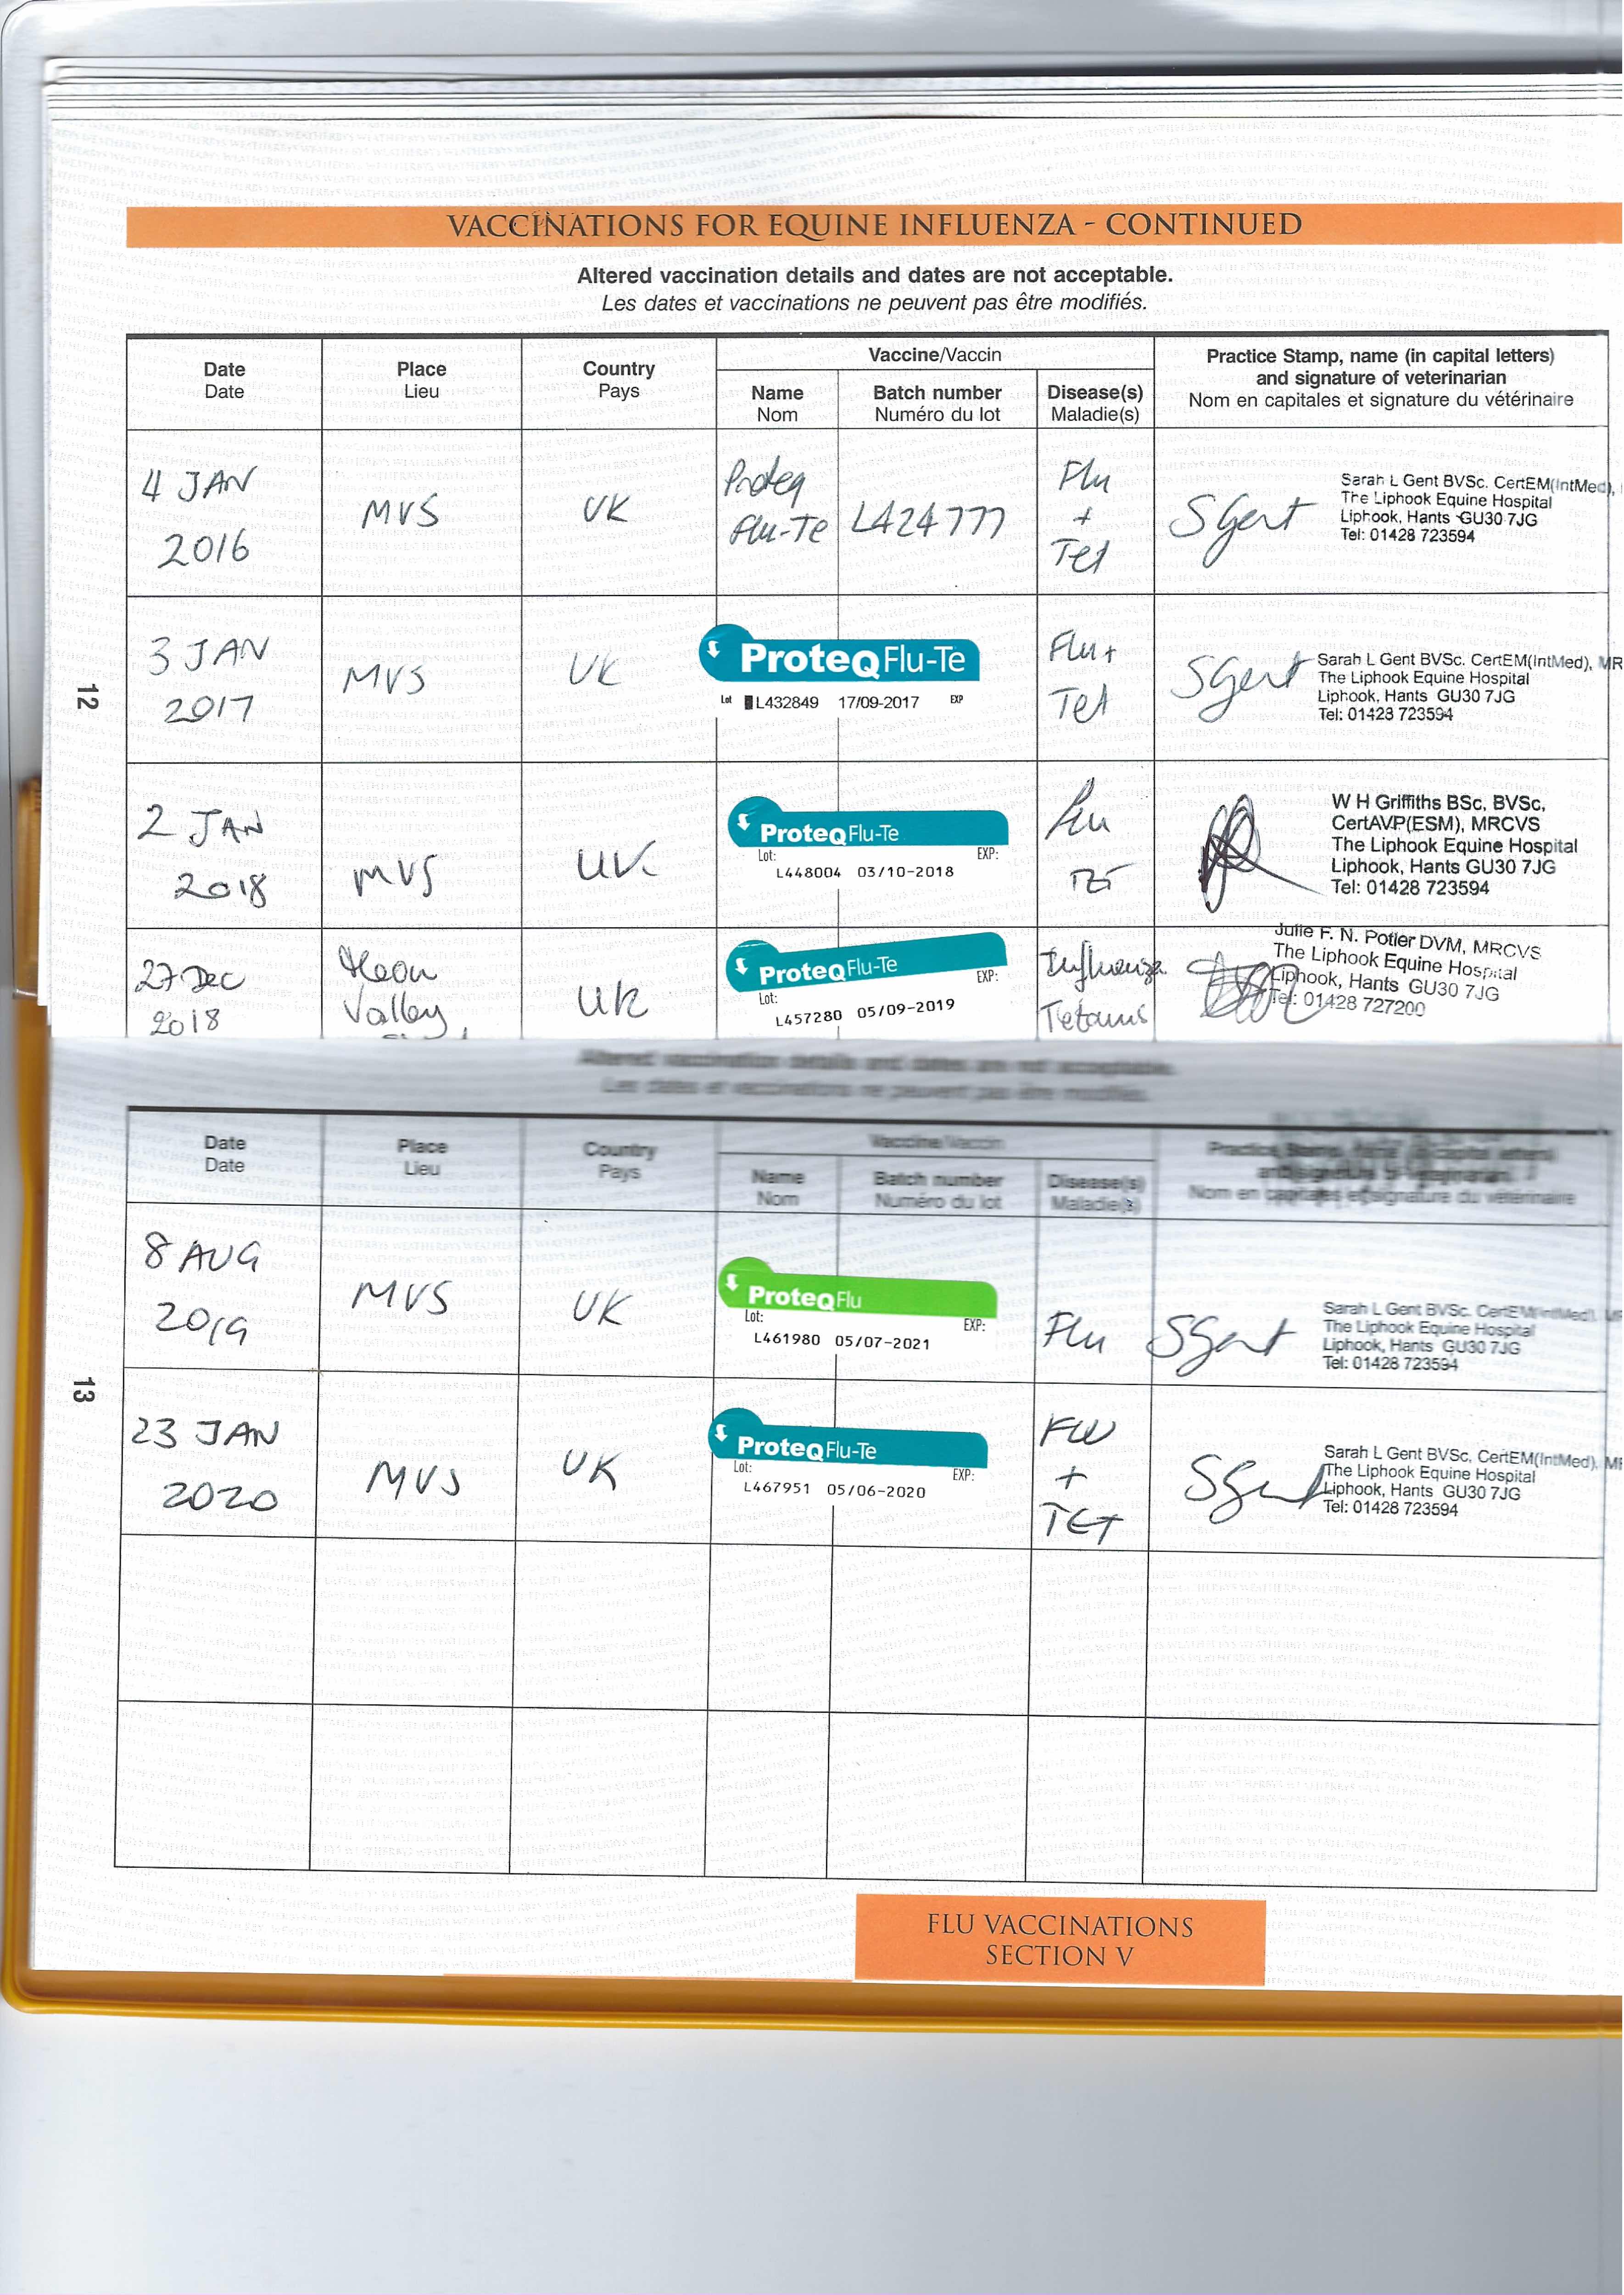 VACCINATIONS FOR EQUINE INFLUENZA - CONTINUED
Altered vaccination details and dates are not acceptable.
Les dates et vaccinations ne peuvent pas être modifiés.
Date Place Country Vaccine/Vaccin Practice Stamp, name (in capital letters)
Date Lieu Pays and signature of veterinarian
Name Batch number Disease(s) Nom en capitales et signature du vétérinaire
Nom Numéro du lot Maladie(s)
4 JAN
2016
MVS
UK
Proteq
Flu-Te
L424777
Flu
+
Tet
SGent
Sarah L Gent BVSc. CertEM(IntMed),
The Liphook Equine Hospital
Liphook, Hants GU30 7JG
Tel: 01428 723594
3 JAN
2017
MVS
UK
ProteqFlu-Te
Lot L432849 17/09-2017 EXP
Flu+
Tet
SGent
Sarah L Gent BVSc. CertEM(IntMed), MR
The Liphook Equine Hospital
Liphook, Hants GU30 7JG
Tel: 01428 723594
12
2 JAN
2018
MVS
UK
ProteqFlu-Te
Lot: EXP:
L448004 03/10-2018
Flu
W H Griffiths BSc, BVSc,
CertAVP(ESM), MRCVS
The Liphook Equine Hospital
Liphook, Hants GU30 7JG
Tel: 01428 723594
27 Dec
2018
Meon
Valley
UK
ProteqFlu-Te
Lot: EXP:
L457280 05/09-2019
Influenza
Tetanus
Julie F. N. Potier DVM, MRCVS
The Liphook Equine Hospital
Liphook, Hants GU30 7JG
Tel: 01428 727200
Altered vaccination details and dates are not acceptable.
Les dates et vaccinations ne peuvent pas être modifiés.
Date Place Country Vaccine/Vaccin Practice Stamp, name (in capital letters)
Date Lieu Pays and signature of veterinarian
Name Batch number Disease(s) Nom en capitales et signature du vétérinaire
Nom Numéro du lot Maladie(s)
8 AUG
2019
MVS
UK
ProteqFlu
Lot: EXP:
L461980 05/07-2021
Flu
SGent
Sarah L Gent BVSc. CertEM(IntMed), MR
The Liphook Equine Hospital
Liphook, Hants GU30 7JG
Tel: 01428 723594
13
23 JAN
2020
MVS
UK
ProteqFlu-Te
Lot: EXP:
L467951 05/06-2020
FLU
+
TET
SGent
Sarah L Gent BVSc, CertEM(IntMed), MR
The Liphook Equine Hospital
Liphook, Hants GU30 7JG
Tel: 01428 723594
FLU VACCINATIONS
SECTION V